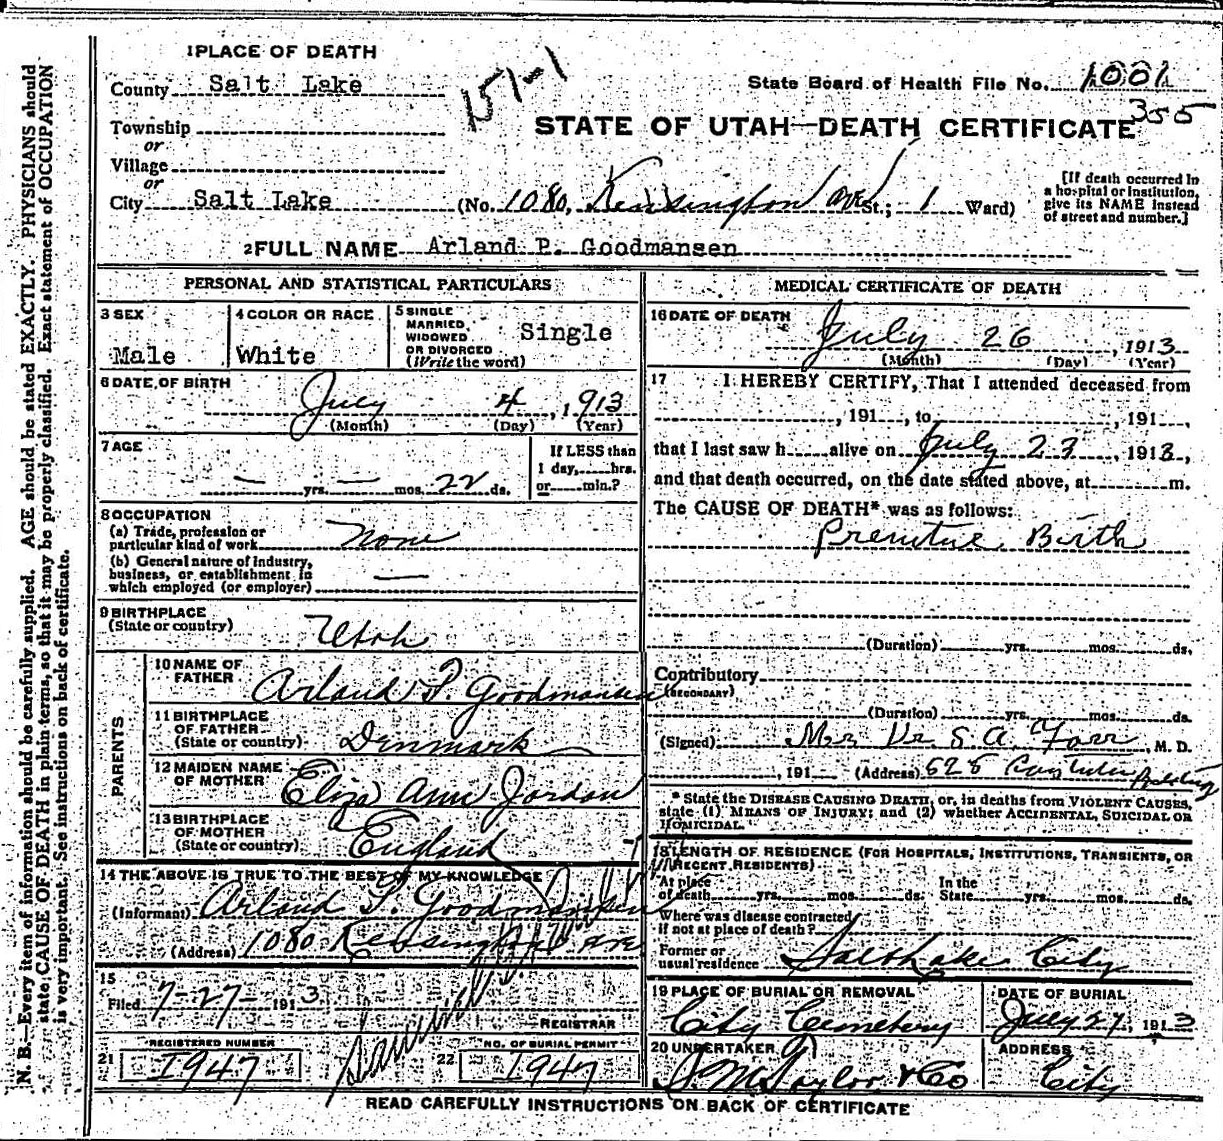 1 PLACE OF DEATH
County Salt Lake
151-1
State Board of Health File No. 1001
355
STATE OF UTAH—DEATH CERTIFICATE
Township
or
Village
or
City Salt Lake (No. 1080, Kensington ave St.; 1 Ward)
[If death occurred in
a hospital or institution,
give its NAME instead
of street and number.]
2 FULL NAME Arland P. Goodmansen
PERSONAL AND STATISTICAL PARTICULARS
3 SEX
Male
4 COLOR OR RACE
White
5 SINGLE
MARRIED,
WIDOWED
OR DIVORCED
(Write the word)
Single
6 DATE OF BIRTH
July 4, 1913
(Month) (Day) (Year)
7 AGE
— yrs. — mos. 22 ds.
If LESS than
1 day, hrs.
or min.?
8 OCCUPATION
(a) Trade, profession or
particular kind of work None
(b) General nature of industry,
business, or establishment in
which employed (or employer) —
9 BIRTHPLACE
(State or country) Utah
PARENTS
10 NAME OF
FATHER
Arland P. Goodmansen
11 BIRTHPLACE
OF FATHER
(State or country) Denmark
12 MAIDEN NAME
OF MOTHER
Eliza Ann Jordan
13 BIRTHPLACE
OF MOTHER
(State or country) England
14 THE ABOVE IS TRUE TO THE BEST OF MY KNOWLEDGE
(Informant) Arland P. Goodmansen
(Address) 1080 Kensington ave
15
Filed 7-27- 1913
REGISTRAR
21 REGISTERED NUMBER
I947
22 NO. OF BURIAL PERMIT
I947
MEDICAL CERTIFICATE OF DEATH
16 DATE OF DEATH
July 26, 1913
(Month) (Day) (Year)
17 I HEREBY CERTIFY, That I attended deceased from
, 191 , to , 191 ,
that I last saw h alive on July 23, 1913,
and that death occurred, on the date stated above, at m.
The CAUSE OF DEATH* was as follows:
Premture Birth
(Duration) yrs. mos. ds.
Contributory
(SECONDARY)
(Duration) yrs. mos. ds.
(Signed) Mrs Dr. S. A. Farr, M. D.
, 191 (Address) 628
* State the DISEASE CAUSING DEATH, or, in deaths from VIOLENT CAUSES,
state (1) MEANS OF INJURY; and (2) whether ACCIDENTAL, SUICIDAL OR
HOMICIDAL.
18 LENGTH OF RESIDENCE (FOR HOSPITALS, INSTITUTIONS, TRANSIENTS, OR
RECENT RESIDENTS)
At place
of death yrs. mos. ds.
In the
State yrs. mos. ds.
Where was disease contracted
if not at place of death?
Former or
usual residence Salt Lake City
19 PLACE OF BURIAL OR REMOVAL
City Cemetery
DATE OF BURIAL
July 27, 1913
20 UNDERTAKER
S. M. Taylor & Co
ADDRESS
City
READ CAREFULLY INSTRUCTIONS ON BACK OF CERTIFICATE
N. B.—Every item of information should be carefully supplied. AGE should be stated EXACTLY. PHYSICIANS should
state CAUSE OF DEATH in plain terms, so that it may be properly classified. Exact statement of OCCUPATION
is very important. See instructions on back of certificate.